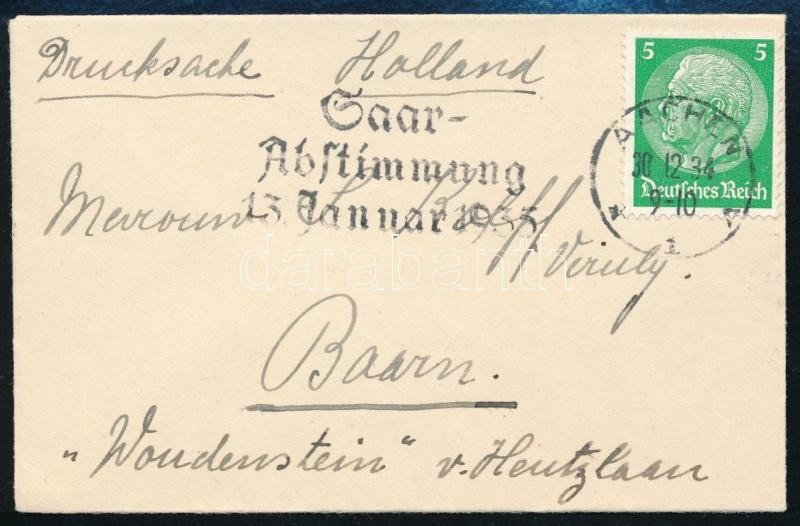 Drucksache Holland
5 5
Deutsches Reich
AACHEN
30 12 34
9-10
* 1
Saar-
Abstimmung
13. Januar 1935
Viruly.
Baarn.
"Woudenstein" v. Heutzlaan
darabanth